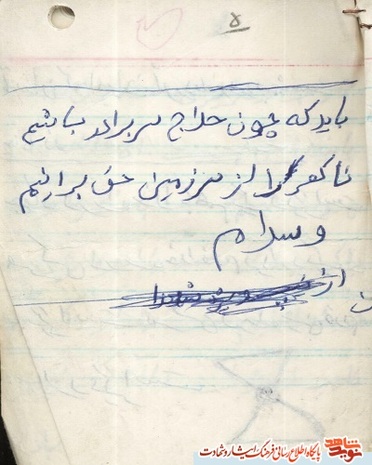 ۵
باید که چون حلاج سر بر دار باشیم
تا کفر را از سرزمین حق برانیم
وسلام
از
نوید شاهد
پایگاه اطلاع رسانی فرهنگ ایثار و شهادت